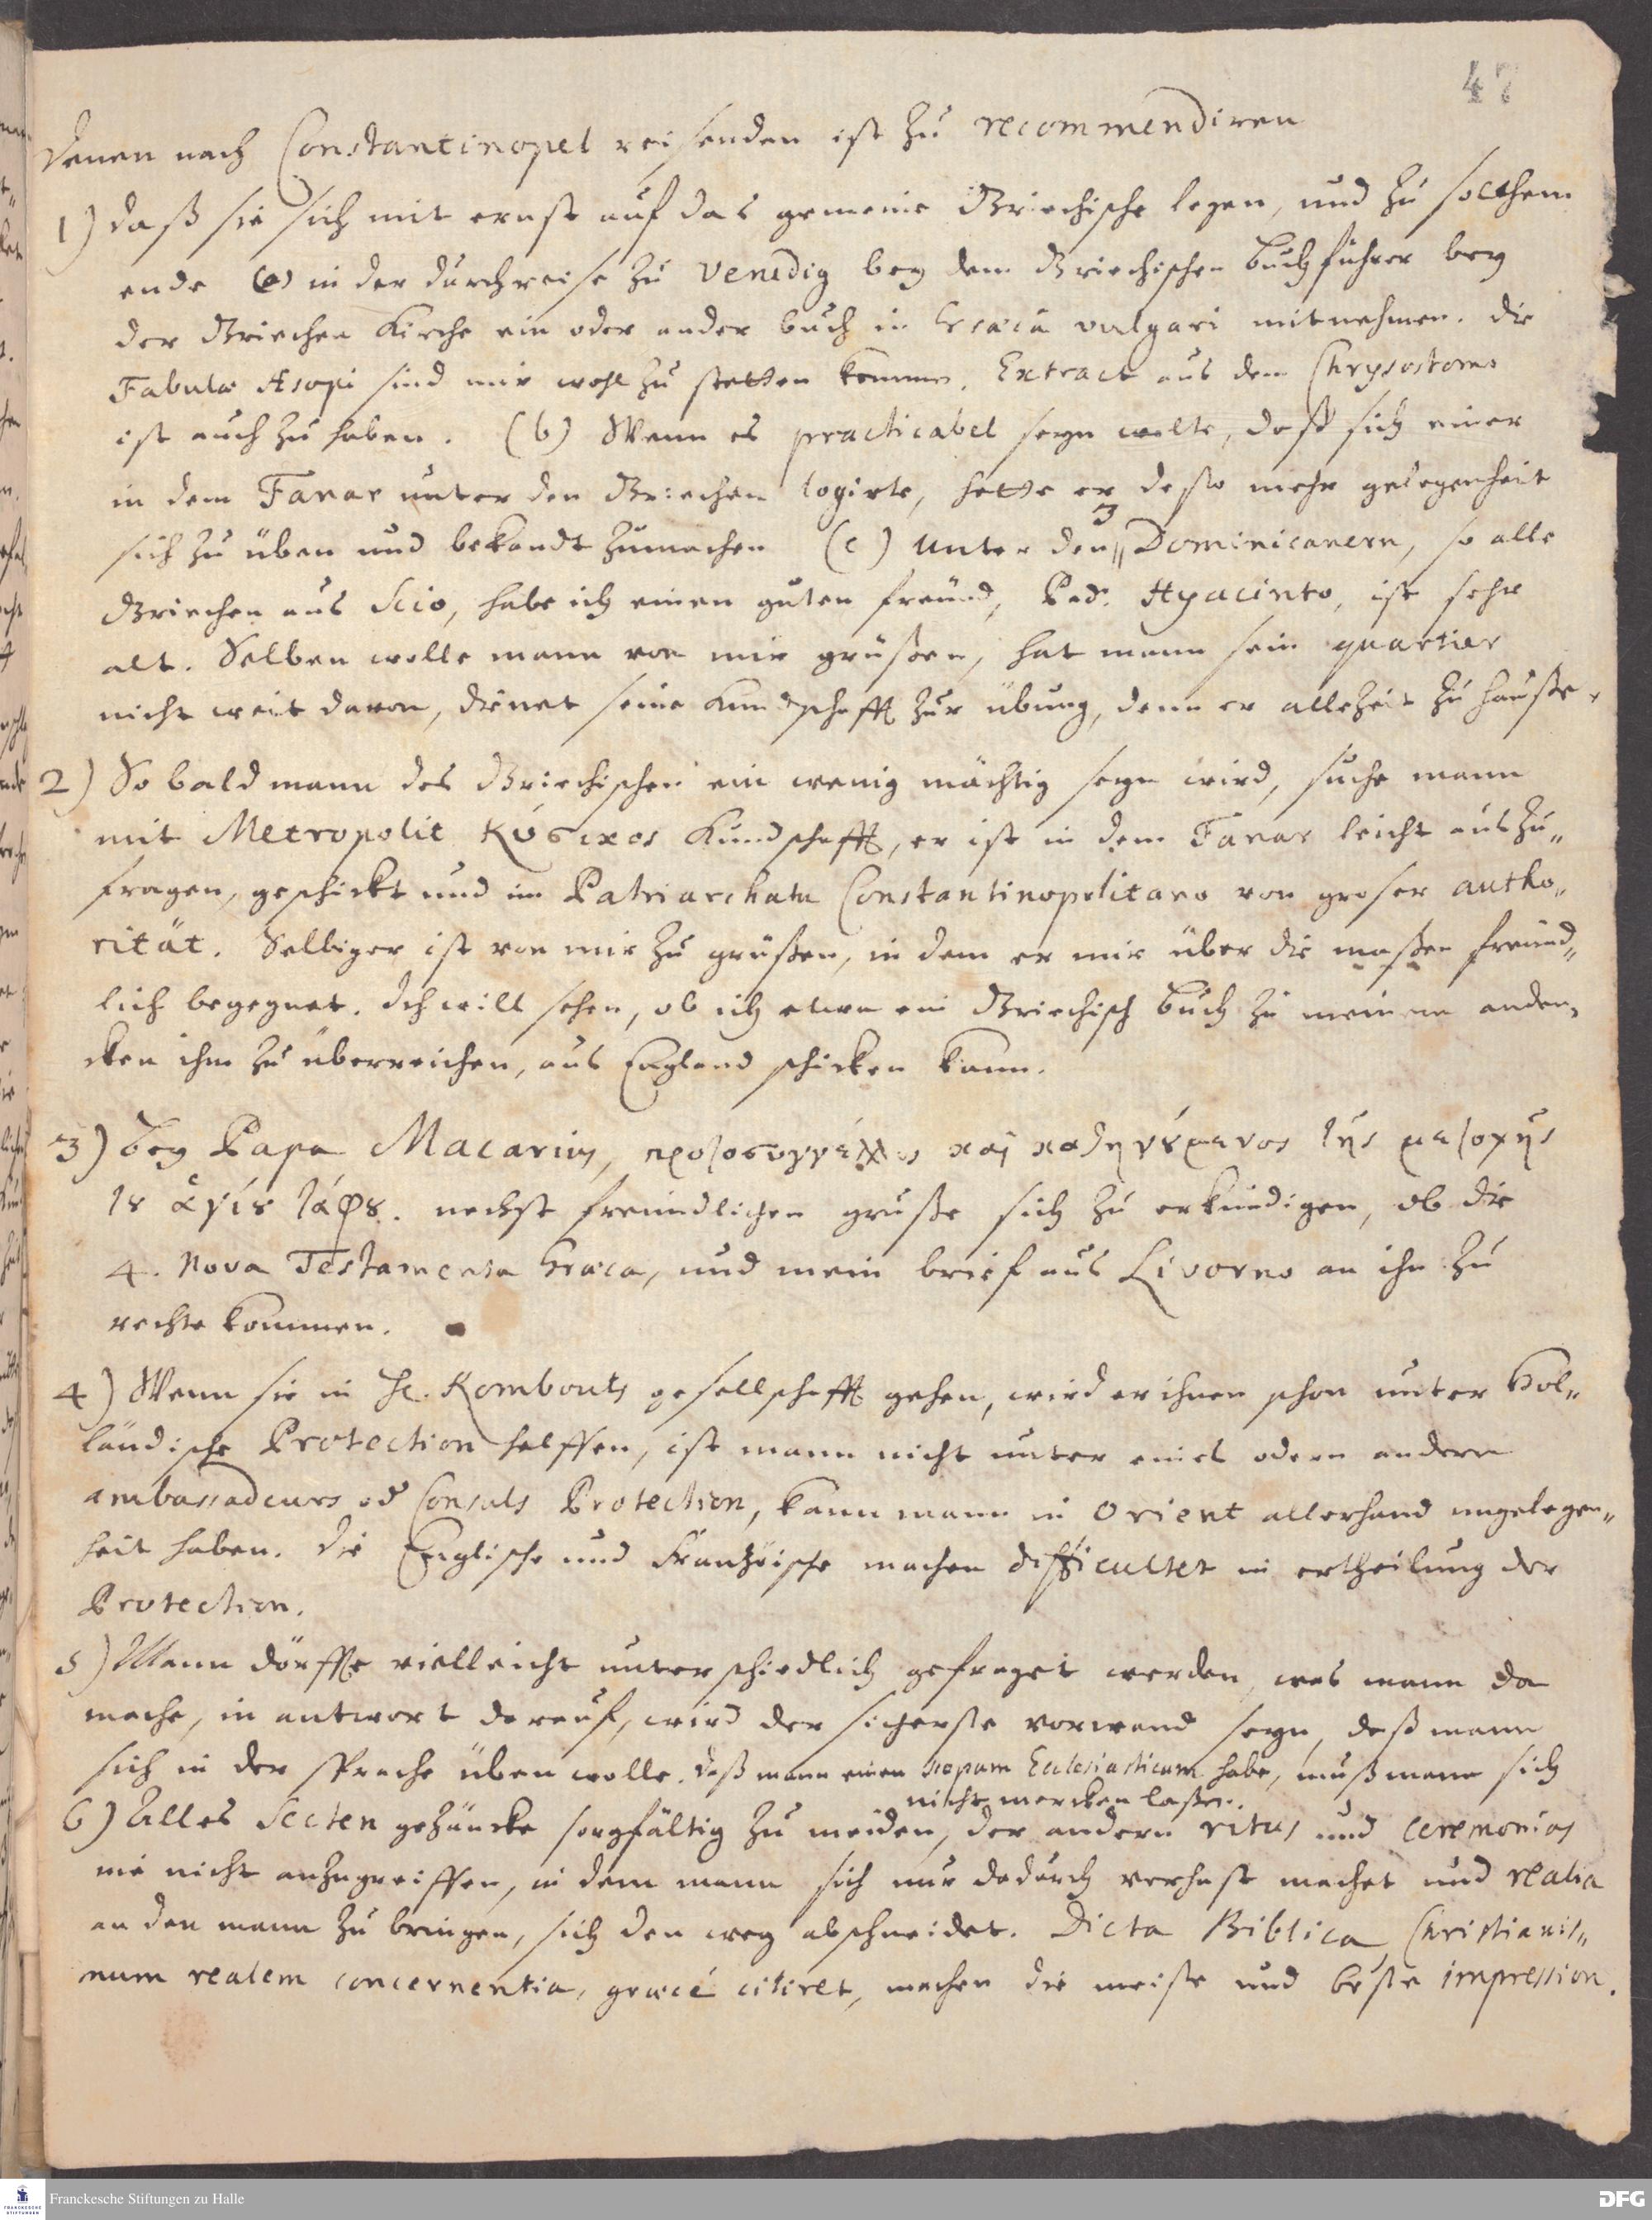 47
Denen nach Constantinopel reisenden ist zu recommendiren
1) daß sie sich mit ernst auf das gemeine Griechische legen, und zu solchem
ende (a) in der durchreise zu Venedig bey dem Griechischen buchführer bey
der Griechen Kirche ein oder ander buch in Græca vulgari mitnehmen. Die
Fabulæ Æsopi sind mir wohl zu statten kommen. Extract aus dem Chrysostomo
ist auch zu haben. (b) Wenn es practicabel seyn wolte, daß sich einer
in dem Fanar unter den Griechen logirte, hette er desto mehr gelegenheit
sich zu üben und bekandt zumachen (c) unter den 3 Dominicanern, so alle
Griechen aus Scio, habe ich einen guten freund, Pad. Hyacinto, ist sehr
alt. Selben wolle mann von mir grüßen, hat mann sein quartier
nicht weit davon, dienet seine Kundschafft zur übung, denn er allezeit zu hauße.
2) So bald mann des Griechischen ein wenig mächtig seyn wird, suche mann
mit Metropolit Κύσικος Kundschafft, er ist in dem Fanar leicht auszu„
fragen, geschickt und im Patriarchatu Constantinopolitano von groser autho„
rität. Selbiger ist von mir zu grüßen, in dem er mir über die maßen freund„
lich begegnet. Ich will sehen, ob ich etwa ein Griechisch buch zu meinem anden„
cken ihm zu überreichen, aus England schicken kann.
3) bey Papa Macarius, πρωτοσύγγελλος καὶ καθηγούμενος τῆς μετοχῆς
τȣ ἁγίȣ τάφȣ. nechst freundlichen gruße sich zu erkundigen, ob die
4. Nova Testamenta Græca, und mein brief aus Livorno an ihn zu
rechte kommen.
4) Wenn sie in H. Rombouts gesellschafft gehen, wird er ihnen schon unter Hol„
ländische Protection helffen, ist mann nicht unter eines odern andern
ambassadeurs od Consuls Protection, kann mann in Orient allerhand ungelegen„
heit haben. Die Englische und Französische machen difficultet in ertheilung der
Protection.
5) Mann dörffte vielleicht unterschiedlich gefraget werden, was mann da
mache, in antwort darauf, wird der sicherste vorwand seyn, daß mann
sich in der sprache üben wolle. daß mann einen scopum Ecclesiasticum habe, muß mann sich
nicht mercken laßen.
6) Alles Secten gezäncke sorgfältig zu meiden, der andern ritus und ceremonias
nie nicht anzugreiffen, in dem mann sich nur dadurch verhast machet und realia
an den mann zu bringen, sich den weg abschneidet. Dicta Biblica Christianis„
mum realem concernentia, græcè citiret, machen die meiste und beste impression.
Franckesche Stiftungen zu Halle
DFG